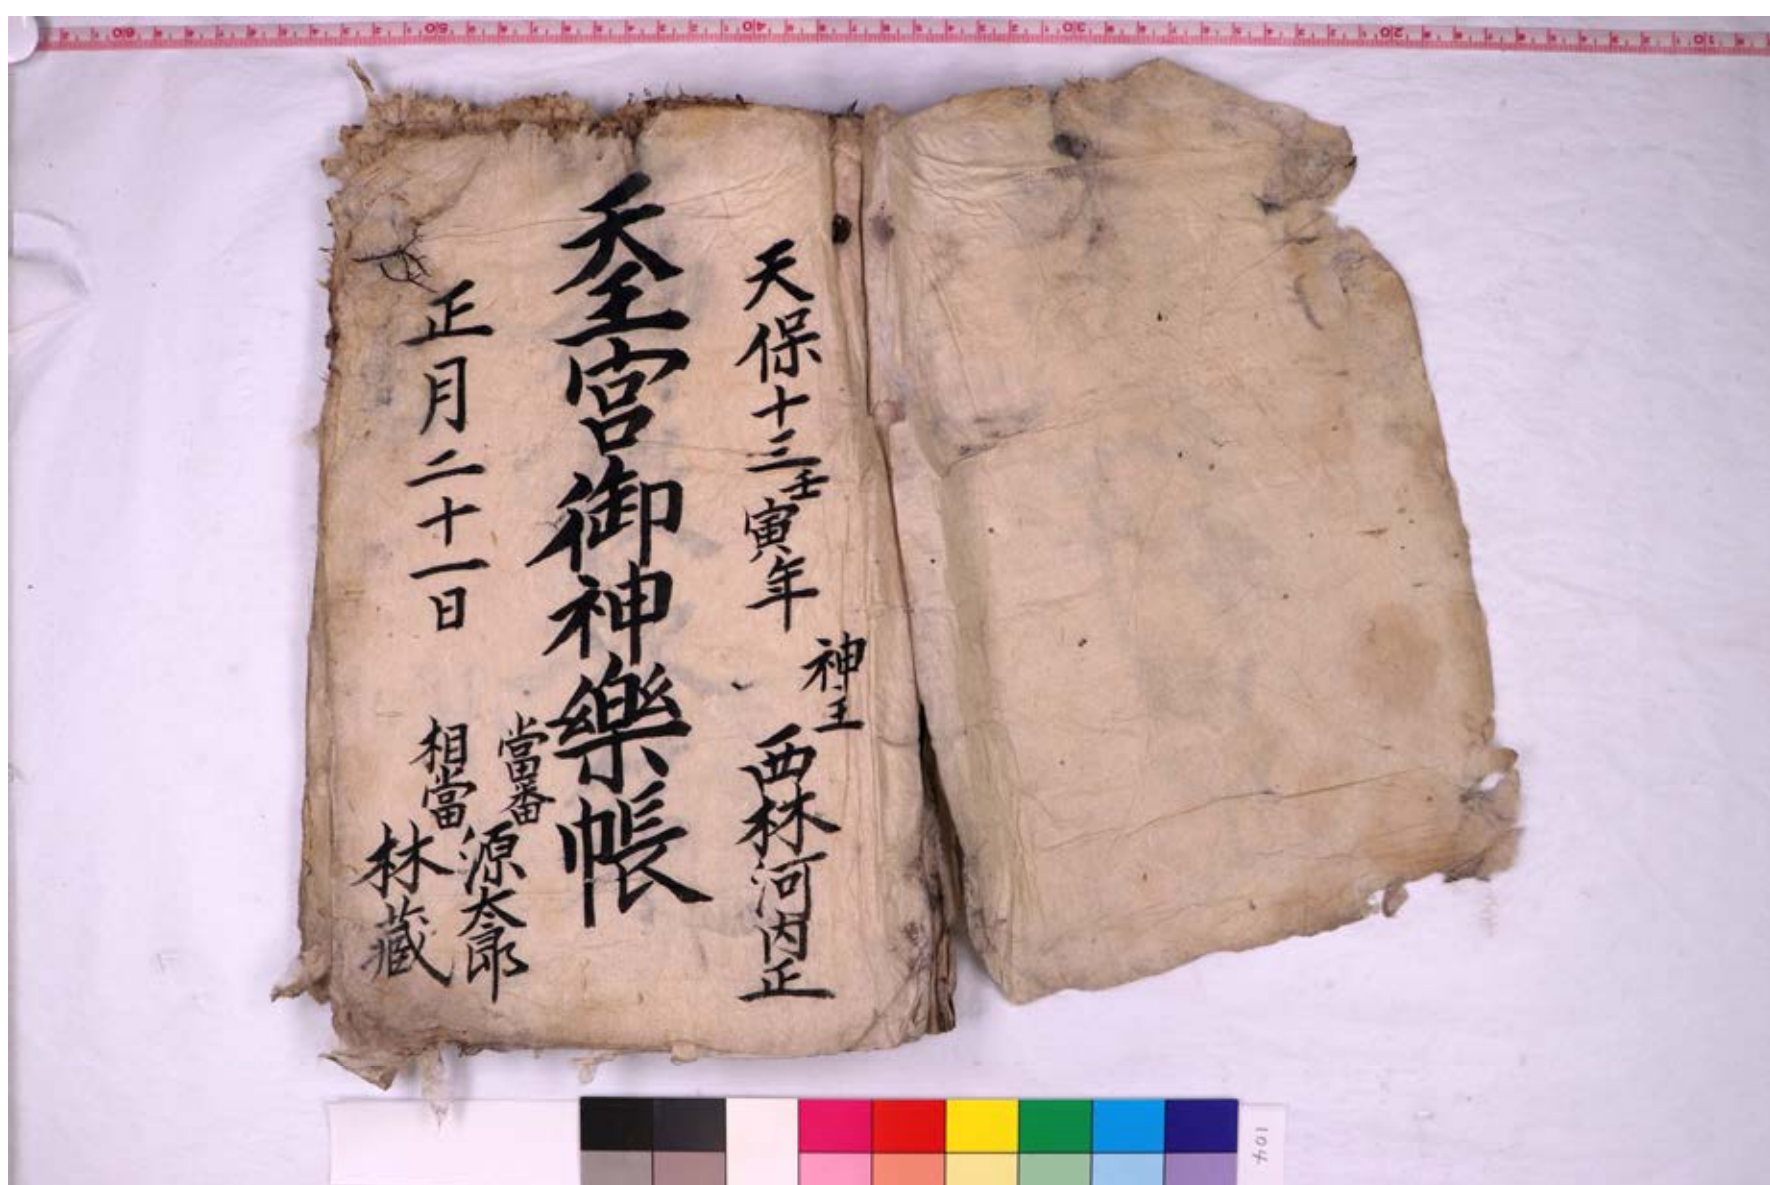 天保十三壬寅年
神主
西林河内正
天王宮御神樂帳
正月二十一日
當番
源太郎
相當
林藏
104